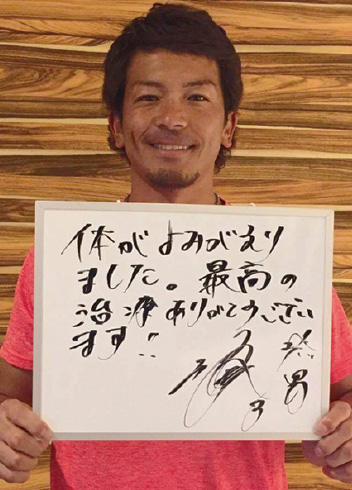 体がよみがえり
ました。最高の
治療ありがとうござい
ます!!